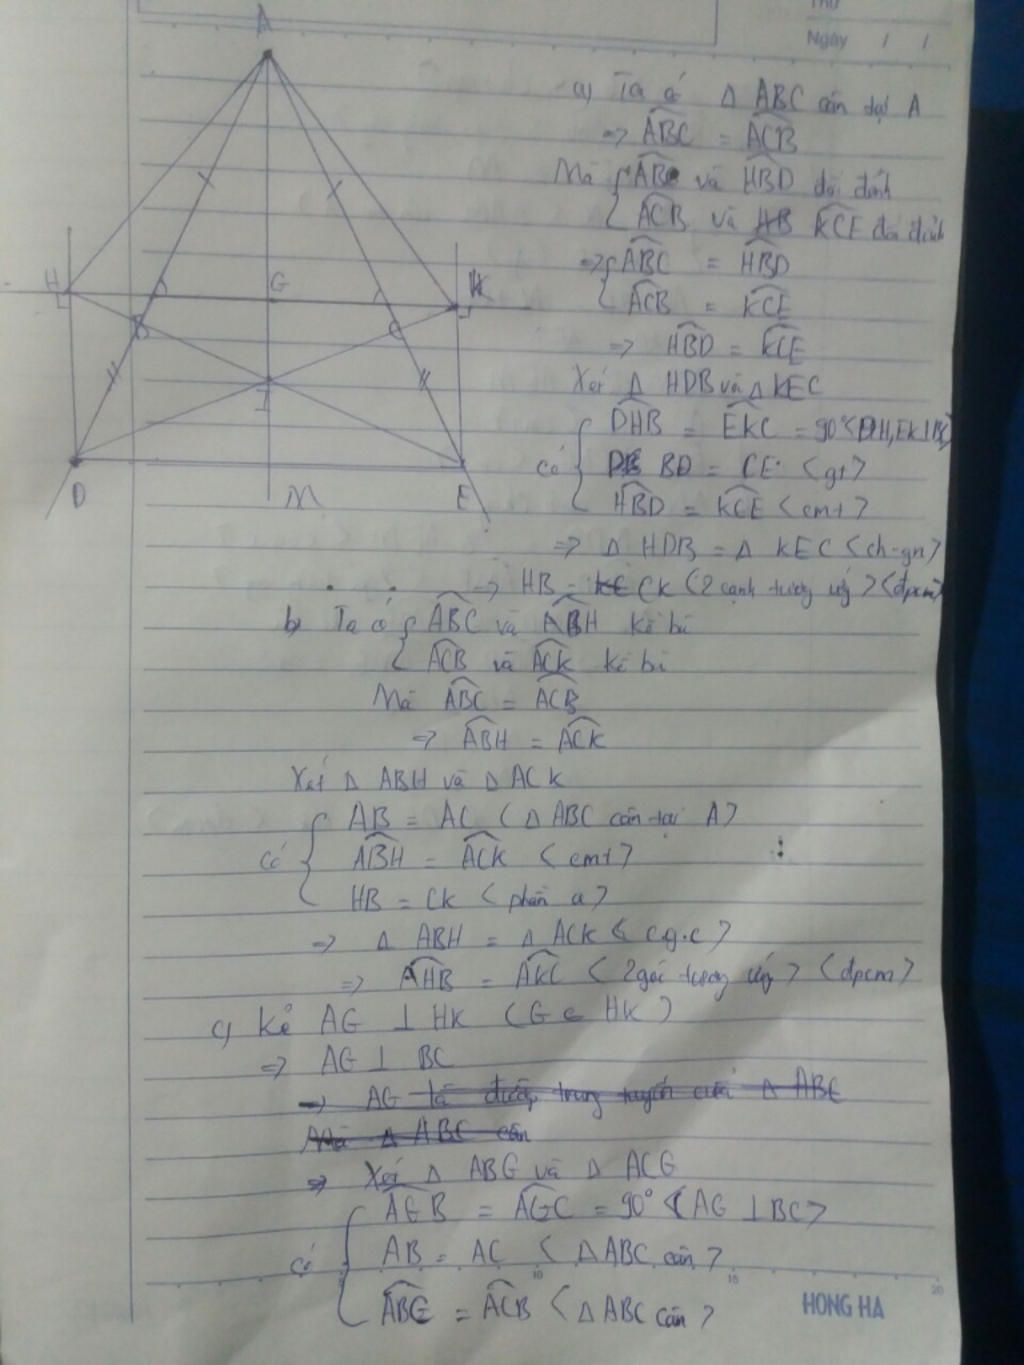 Thứ
Ngày / /
A
H
G
K
B
C
I
D
M
E
a) Ta có △ ABC cân tại A
=> ABC = ACB
Mà { ABC và HBD đối đỉnh
ACB và KCE đối đỉnh
=> { ABC = HBD
ACB = KCE
=> HBD = KCE
Xét △ HDB và △ KEC
DHB = EKC = 90° < DH, EK ⊥ BC >
có { BD = CE < gt >
HBD = KCE < cmt >
=> △ HDB = △ KEC < ch-gn >
=> HB = CK < 2 cạnh tương ứng > < đpcm >
b) Ta có { ABC và ABH kề bù
ACB và ACK kề bù
Mà ABC = ACB
=> ABH = ACK
Xét △ ABH và △ ACK
AB = AC < △ ABC cân tại A >
có { ABH = ACK < cmt >
HB = CK < phần a >
=> △ ABH = △ ACK < c.g.c >
=> AHB = AKC < 2 góc tương ứng > < đpcm >
c) Kẻ AG ⊥ HK ( G ∈ HK )
=> AG ⊥ BC
=> AG là đường trung tuyến của △ ABC
Mà △ ABC cân
=> Xét △ ABG và △ ACG
AGB = AGC = 90° < AG ⊥ BC >
có { AB = AC < △ ABC cân >
ABC = ACB < △ ABC cân >
10
15
20
HONG HA